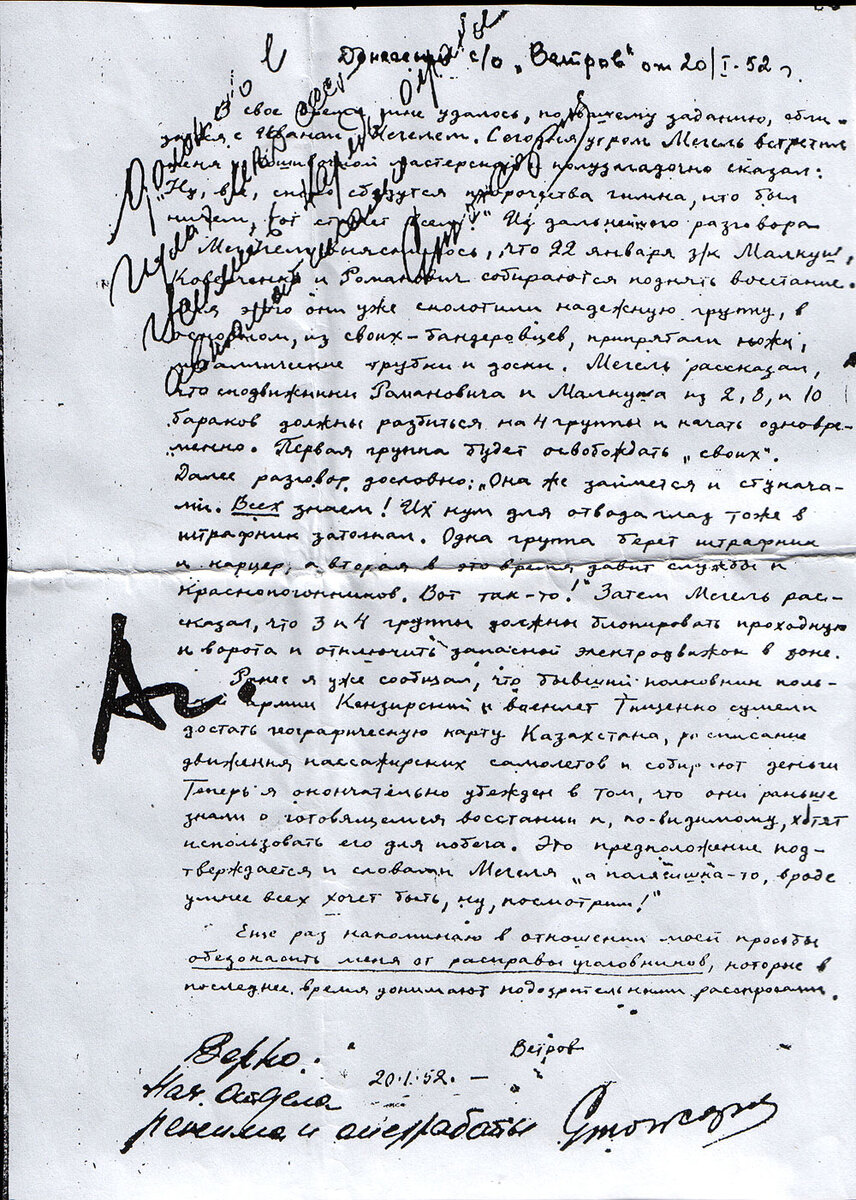 Донесение с/о „Ветров" от 20/I-52 г.
Доложено в
ГУЛаг МВД СССР
Усилить охрану
автоматчиками
В свое время мне удалось, по вашему заданию, сбли-
зиться с Иваном Мегелем. Сегодня утром Мегель встретил
меня пошивочной мастерской и полузагадочно сказал:
"Ну, все, скоро сбудутся пророчества гимна, кто был
ничем, тот станет всем!" Из дальнейшего разговора
с Мегелем выяснилось, что 22 января з/к Малкуш,
Коверченко и Романович собираются поднять восстание.
Для этого они уже сколотили надежную группу, в
основном, из своих-бандеровцев, припрятали ножи,
металлические трубки и доски. Мегель рассказал,
что сподвижники Романовича и Малкуша из 2, 8, и 10
бараков должны разбиться на 4 группы и начать одновре-
менно. Первая группа будет освобождать „своих".
Далее разговор дословно: „Она же займется и стукача-
ми. Всех знаем! Их кум для отвода глаз тоже в
штрафник затолкал. Одна группа берет штрафник
и карцер, а вторая в это время давит службы и
краснопогонников. Вот так-то!" Затем Мегель рас-
сказал, что 3 и 4 группы должны блокировать проходную
и ворота и отключить запасной электродвижок в зоне.
Аг.
Ранее я уже сообщал, что бывший полковник поль-
ской армии Кензирский и военлет Тищенко сумели
достать географическую карту Казахстана, расписание
движения пассажирских самолетов и собирают деньги
Теперь я окончательно убежден в том, что они раньше
знали о готовящемся восстании и, по-видимому, хотят
использовать его для побега. Это предположение под-
тверждается и словами Мегеля „а полячишка-то, вроде
умнее всех хочет быть, ну, посмотрим!"
Еще раз напоминаю в отношении моей просьбы
обезопасить меня от расправы уголовников, которые в
последнее время донимают подозрительными расспросами.
Ветров
Верно:
20.1.52. –
Нач. отдела
режима и оперработы Стожаров